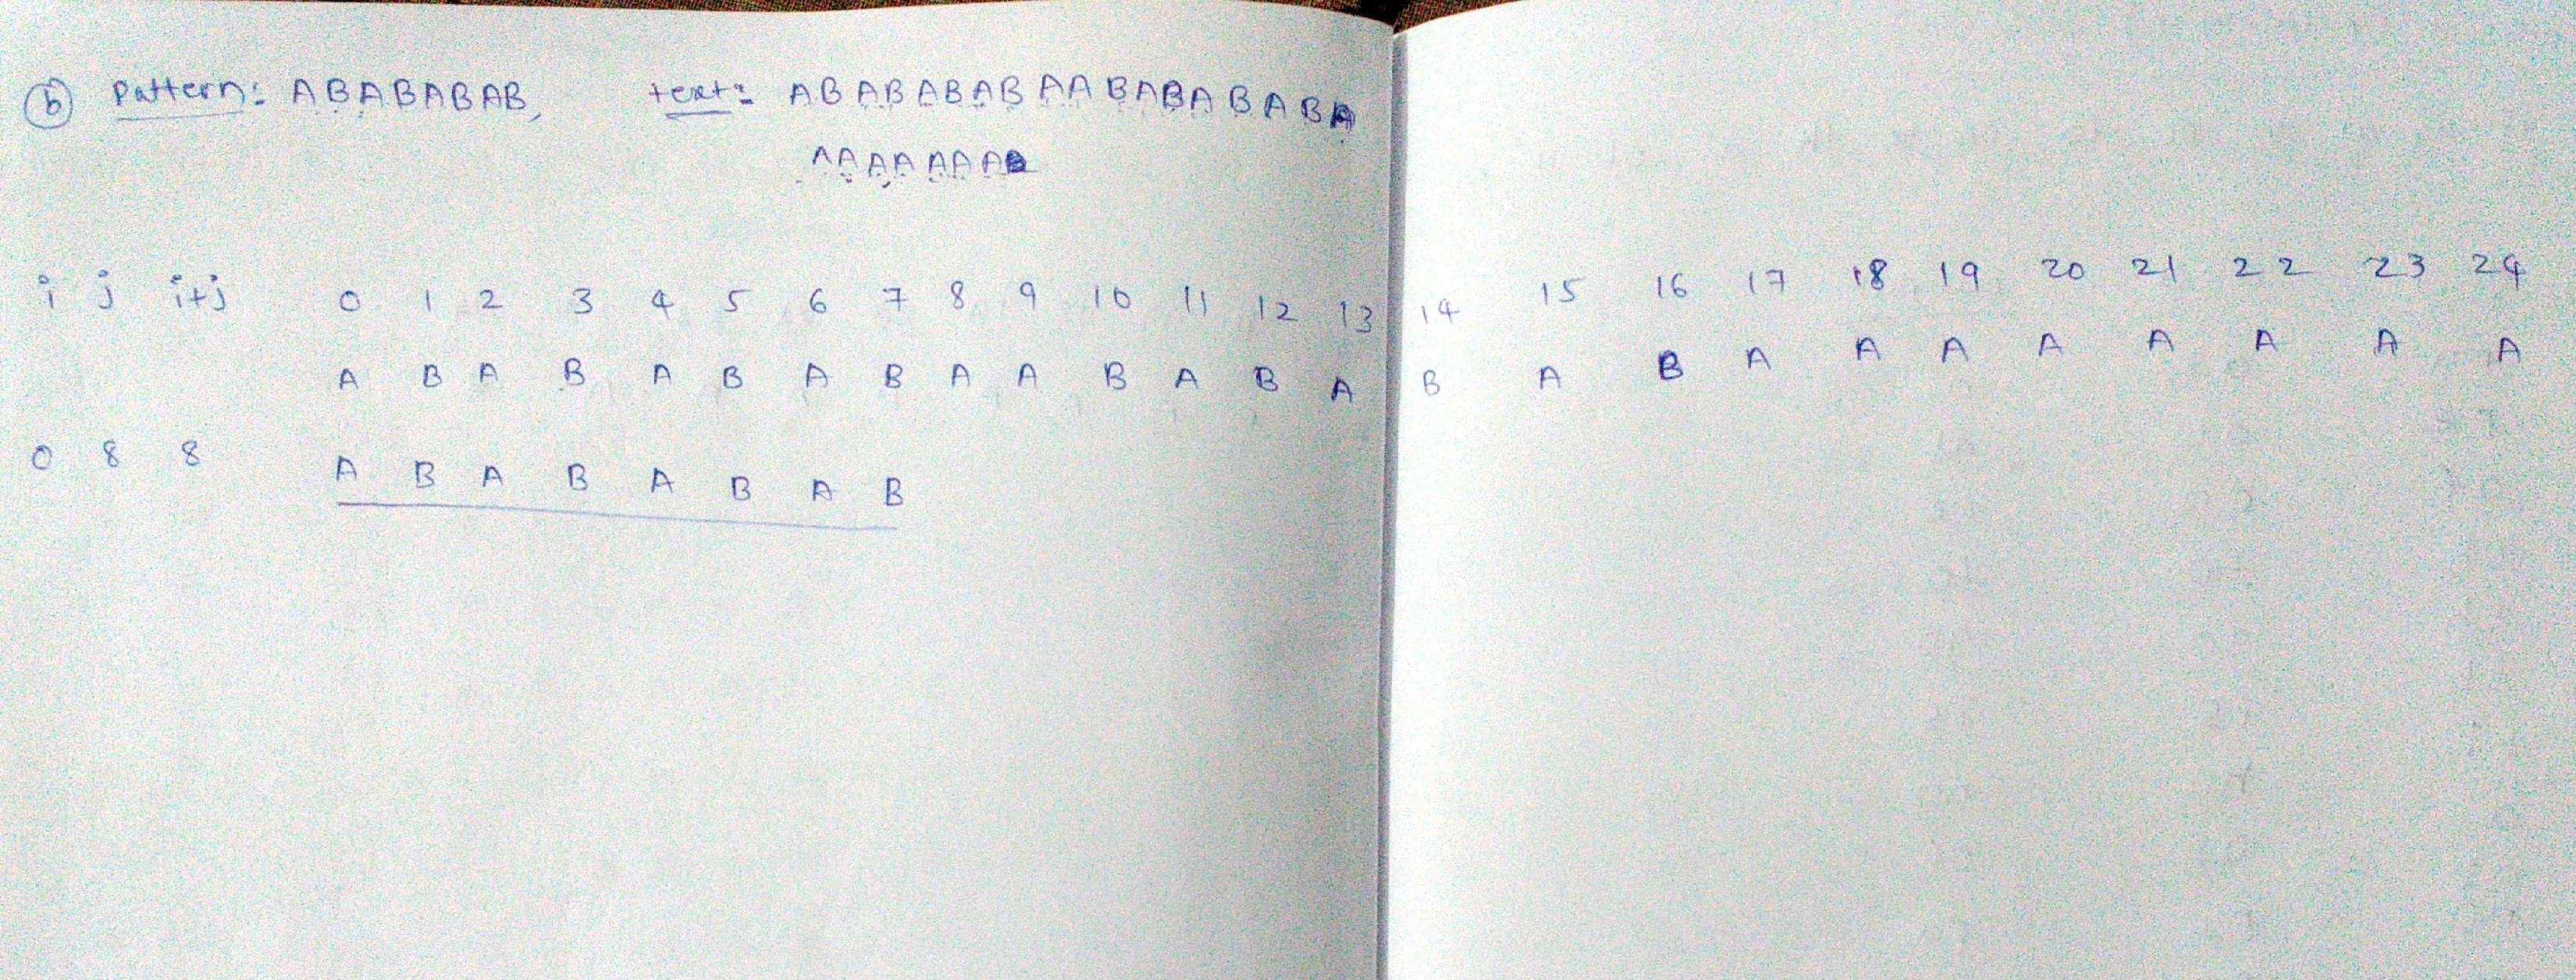 b Pattern: ABABABAB, text: ABABABABAABABABABA
AAAAAAA
i j i+j 0 1 2 3 4 5 6 7 8 9 10 11 12 13 14 15 16 17 18 19 20 21 22 23 24
A B A B A B A B A A B A B A B A B A A A A A A A A
0 8 8 A B A B A B A B